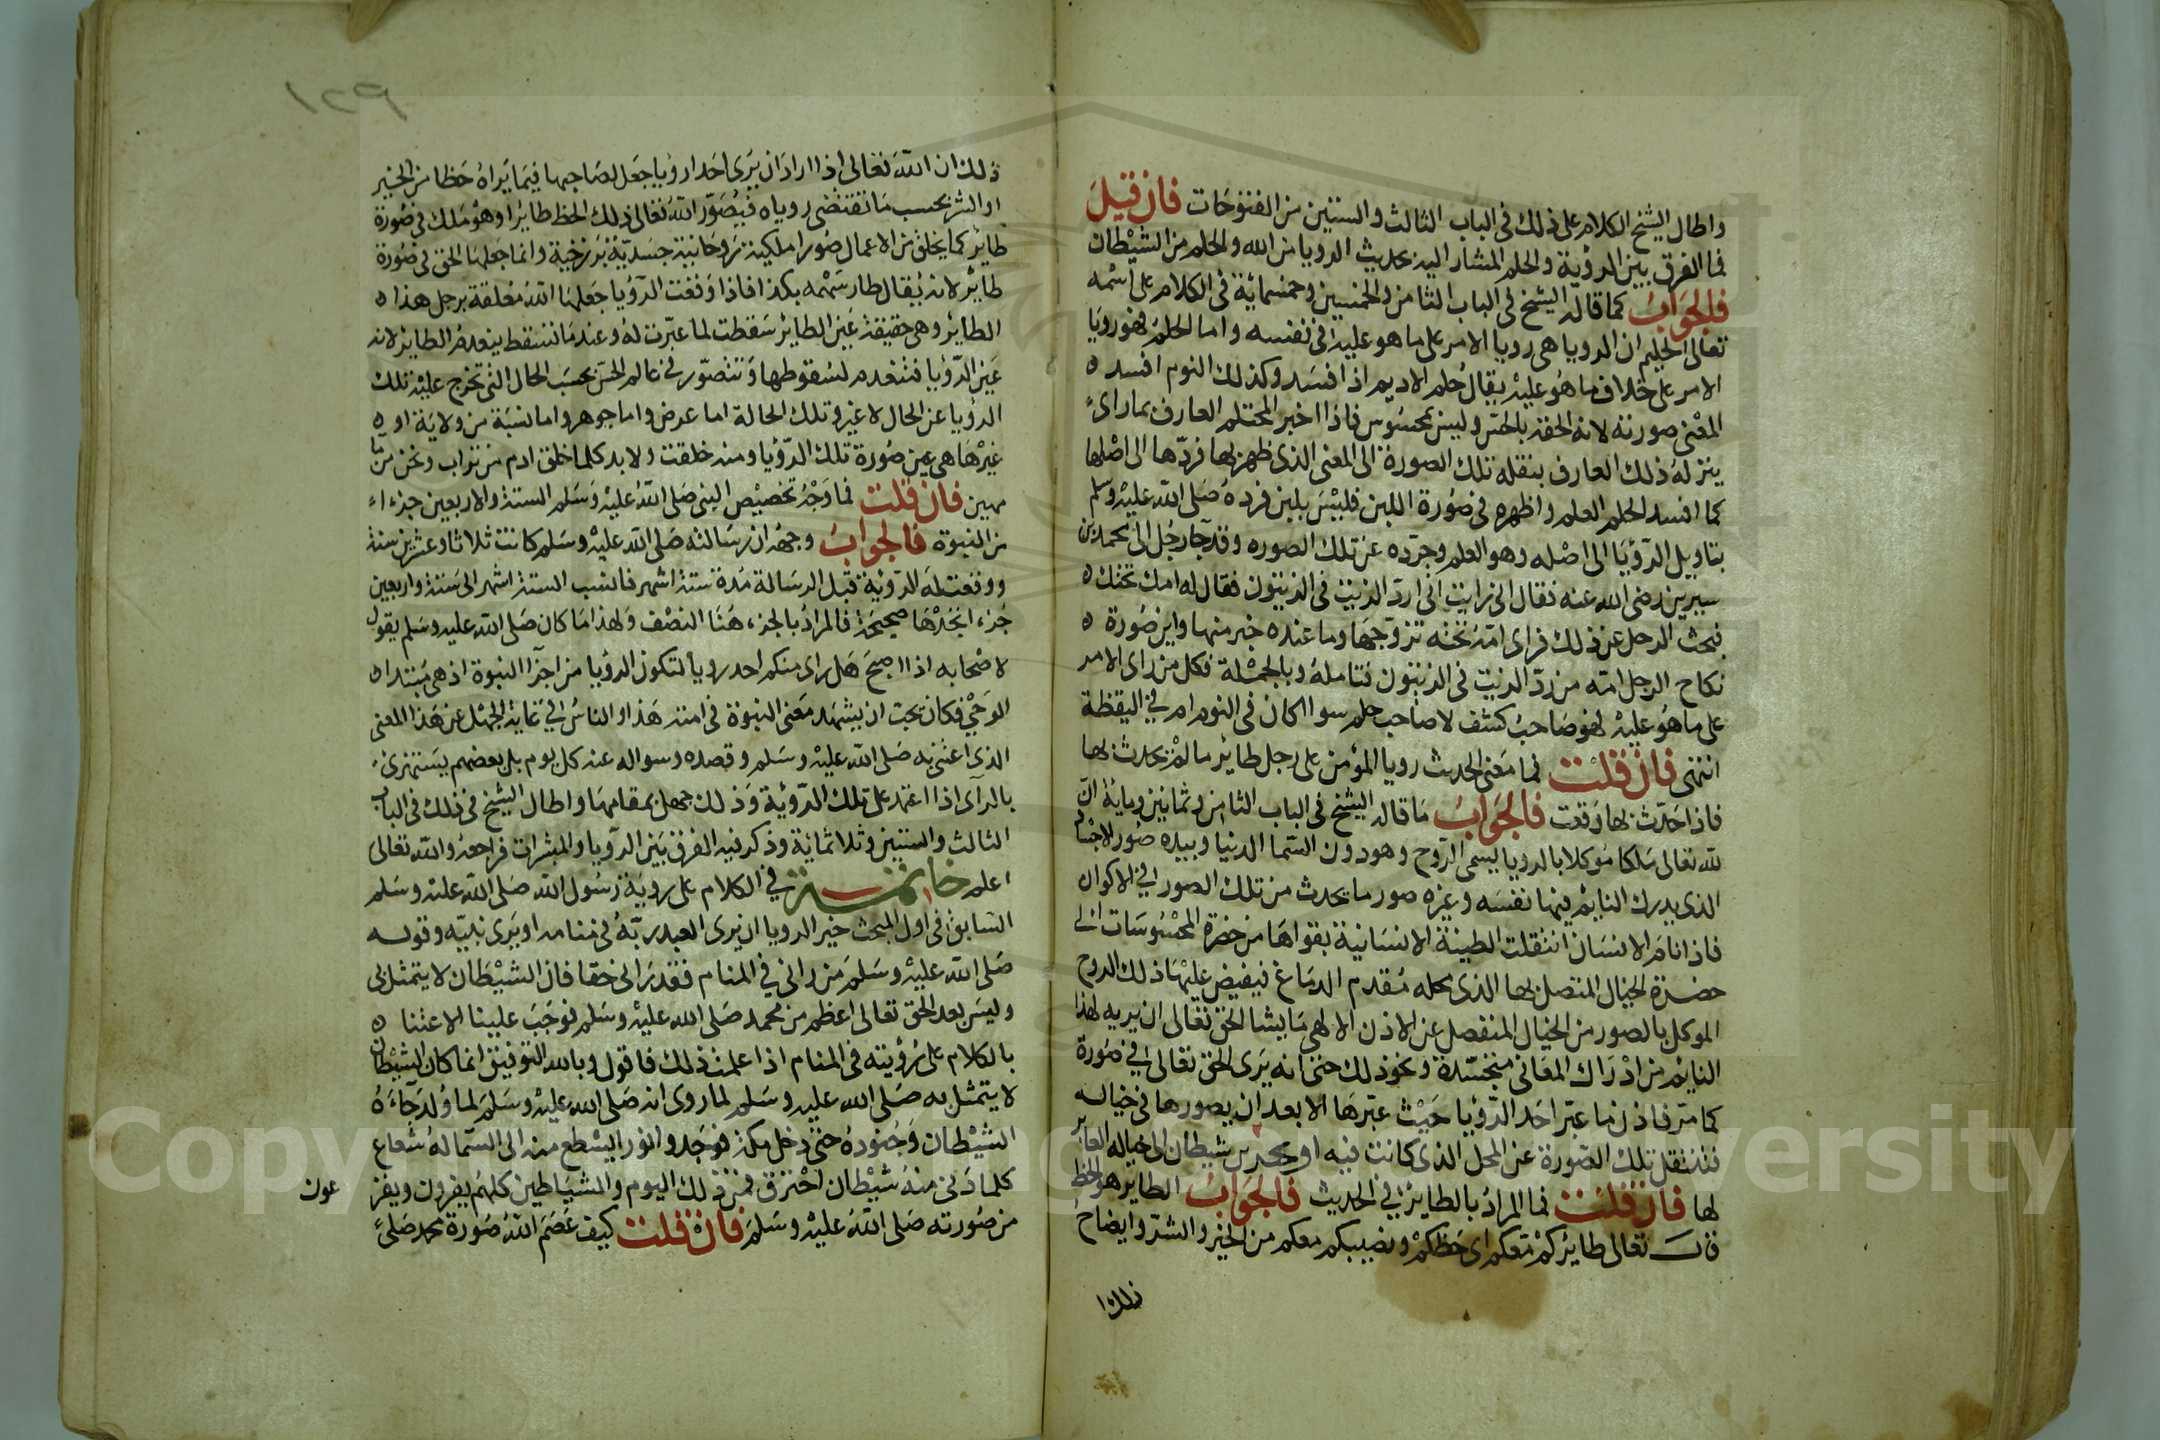 واطال الشيخ الكلام على ذلك في الباب الثالث والستين من الفتوحات فان قيل
فما الفرق بين الرؤية والحلم المشار اليه بحديث الرويا من الله والحلم من الشيطان
فالجواب كما قاله الشيخ في الباب الثامن والخمسين وخمسمائة في الكلام على اسمه
تعالى الحليم ان الرويا هي رويا الامر على ما هو عليه في نفسه واما الحلم فهو رويا
الامر على خلاف ما هو عليه يقال حلم الاديم اذا فسد وكذلك النوم افسد ه
المعنى صورته لانه الحقه بالحس وليس بمحسوس فاذا اخبر المحتلم العارف بما راى
ينزله ذلك العارف بنقله تلك الصورة الى المعنى الذي ظهر بها فردها الى اصلها
كما افسد الحلم العلم واظهره في صورة اللبن فليس بلبن فرده صلى الله عليه وسلم
بتاويل الرؤيا الى اصله وهو العلم وجرده عن تلك الصوره وقد جا رجل الى محمد بن
سيرين رضي الله عنه فقال اني رايت اني ارد الزيت في الزيتون فقال له امك تحتك ه
فبحث الرجل عن ذلك فراى امه تحته تزوجها وما عنده خبر منها واين صورة ه
نكاح الرجل امه من رد الزيت في الزيتون فتامله وبالجملة فكل من راى الامر
على ما هو عليه فهو صاحب كشف لا صاحب حلم سوا كان في النوم ام في اليقظة
انتهى فان قلت فما معنى الحديث رويا المؤمن على رجل طاير ما لم يحدث بها
فاذا حدث بها وقعت فالجواب ما قاله الشيخ في الباب الثامن وثمانين وماية ان
لله تعالى ملكا موكلا بالرويا يسمى الروح وهو دون السما الدنيا وبيده صور الاجساد
الذي يدرك النايم فيها نفسه وغيره صور ما يحدث من تلك الصور في الاكوان
فاذا نام الانسان انتقلت الطينة الانسانية بقواها من حضرة المحسوسات الى
حضرة الخيال المتصل بها الذي محله مقدم الدماغ فيفيض عليها ذلك الروح
الموكل بالصور من الخيال المنفصل عن الاذن الالهي ما يشا الحق تعالى ان يريه لهذا
النايم من ادراك المعاني متجسدة ونحو ذلك حتى انه يرى الحق تعالى في صورة
كما مر فاذن ما عبر احد الرؤيا حيث عبرها الا بعد ان يصورها في خياله
فتنتقل تلك الصورة عن المحل الذي كانت فيه او حديث شيطان الى خياله العابر
لها فان قلت فما المراد بالطاير في الحديث فالجواب الطاير هو الحظ
قال تعالى طايركم معكم اي حظكم ونصيبكم معكم من الخير والشر وايضاح
ذلك
ذلك ان الله تعالى اذا اراد ان يرى احدا رويا جعل لصاحبها فيما يراه حظا من الخير
او الشر بحسب ما تقتضي روياه فيصور الله تعالى ذلك الحظ طائرا وهو ملك في صورة
طائر كما يخلق من الاعمال صورا ملكية روحانية جسدية برزخية وانما جعلها الحق في صورة
طائر لانه يقال طار سهمه بكذا فاذا وقعت الرؤيا جعلها الله معلقة برجل هذا ه
الطائر وهي حقيقة عين الطاير سقطت لما عبرت له وعندما تسقط ينعدم الطاير لانه
عين الرؤيا فتنعدم لسقوطها وتتصور في عالم الحس بحسب الحال التي تخرج عليه تلك
الرؤيا عن الحال لا غير وتلك الحالة اما عرض واما جوهر واما نسبة من ولاية او ه
غيرها هي عين صورة تلك الرؤيا ومنه خلقت ولابد كلما خلق ادم من تراب ونحن من ما
مهين فان قلت فما وجه تخصيص النبي صلى الله عليه وسلم الستة والاربعين جزءا
من النبوة فالجواب وجهه ان رسالته صلى الله عليه وسلم كانت ثلاثا وعشرين سنة
ووقعت له الرؤية قبل الرسالة مدة ستة اشهر فانسب الستة اشهر الى ستة واربعين
جزء اتجدها صحيحة فالمراد بالجزء هنا النصف ولهذا ما كان صلى الله عليه وسلم يقول
لاصحابه اذا اصبح هل راى منكم احد رويا لتكون الرؤيا من اجزا النبوة اذ هي مبتدا ه
الوحي فكان يحب ان يشهد معنى النبوة في امته هذا والناس في غاية الجهل عن هذا المعنى
الذي اعتنى به صلى الله عليه وسلم وقصده وسواله عنه كل يوم بل بعضهم يستهزئ
بالراى اذا اعتمد على تلك الرؤية وذلك جهل بمقامها واطال الشيخ في ذلك في الباب
الثالث والستين وثلاثمائة وذكر فيه الفرق بين الرؤيا والمبشرات فراجعه والله تعالى
اعلم خاتمة في الكلام على روية رسول الله صلى الله عليه وسلم
السابق في اول المبحث خير الرويا ان يرى العبد ربه في منامه او يرى نبيه وقوله
صلى الله عليه وسلم من راني في المنام فقد راني حقا فان الشيطان لا يتمثل بي
وليس بعد الحق تعالى اعظم من محمد صلى الله عليه وسلم فوجب علينا الاعتنا ه
بالكلام على رؤيته في المنام اذا علمت ذلك فاقول وبالله التوفيق انما كان الشيطان
لا يتمثل به صلى الله عليه وسلم لما روى انه صلى الله عليه وسلم لما ولد جاءه
الشيطان وجنوده حتى دخل مكة فوجدوا نورا يسطع منه الى السما له شعاع
كلما دنى منه شيطان احترق فمن ذلك اليوم والشياطين كلهم يفرون ويفز
عون
من صورته صلى الله عليه وسلم فان قلت كيف عصم الله صورة محمد صلى